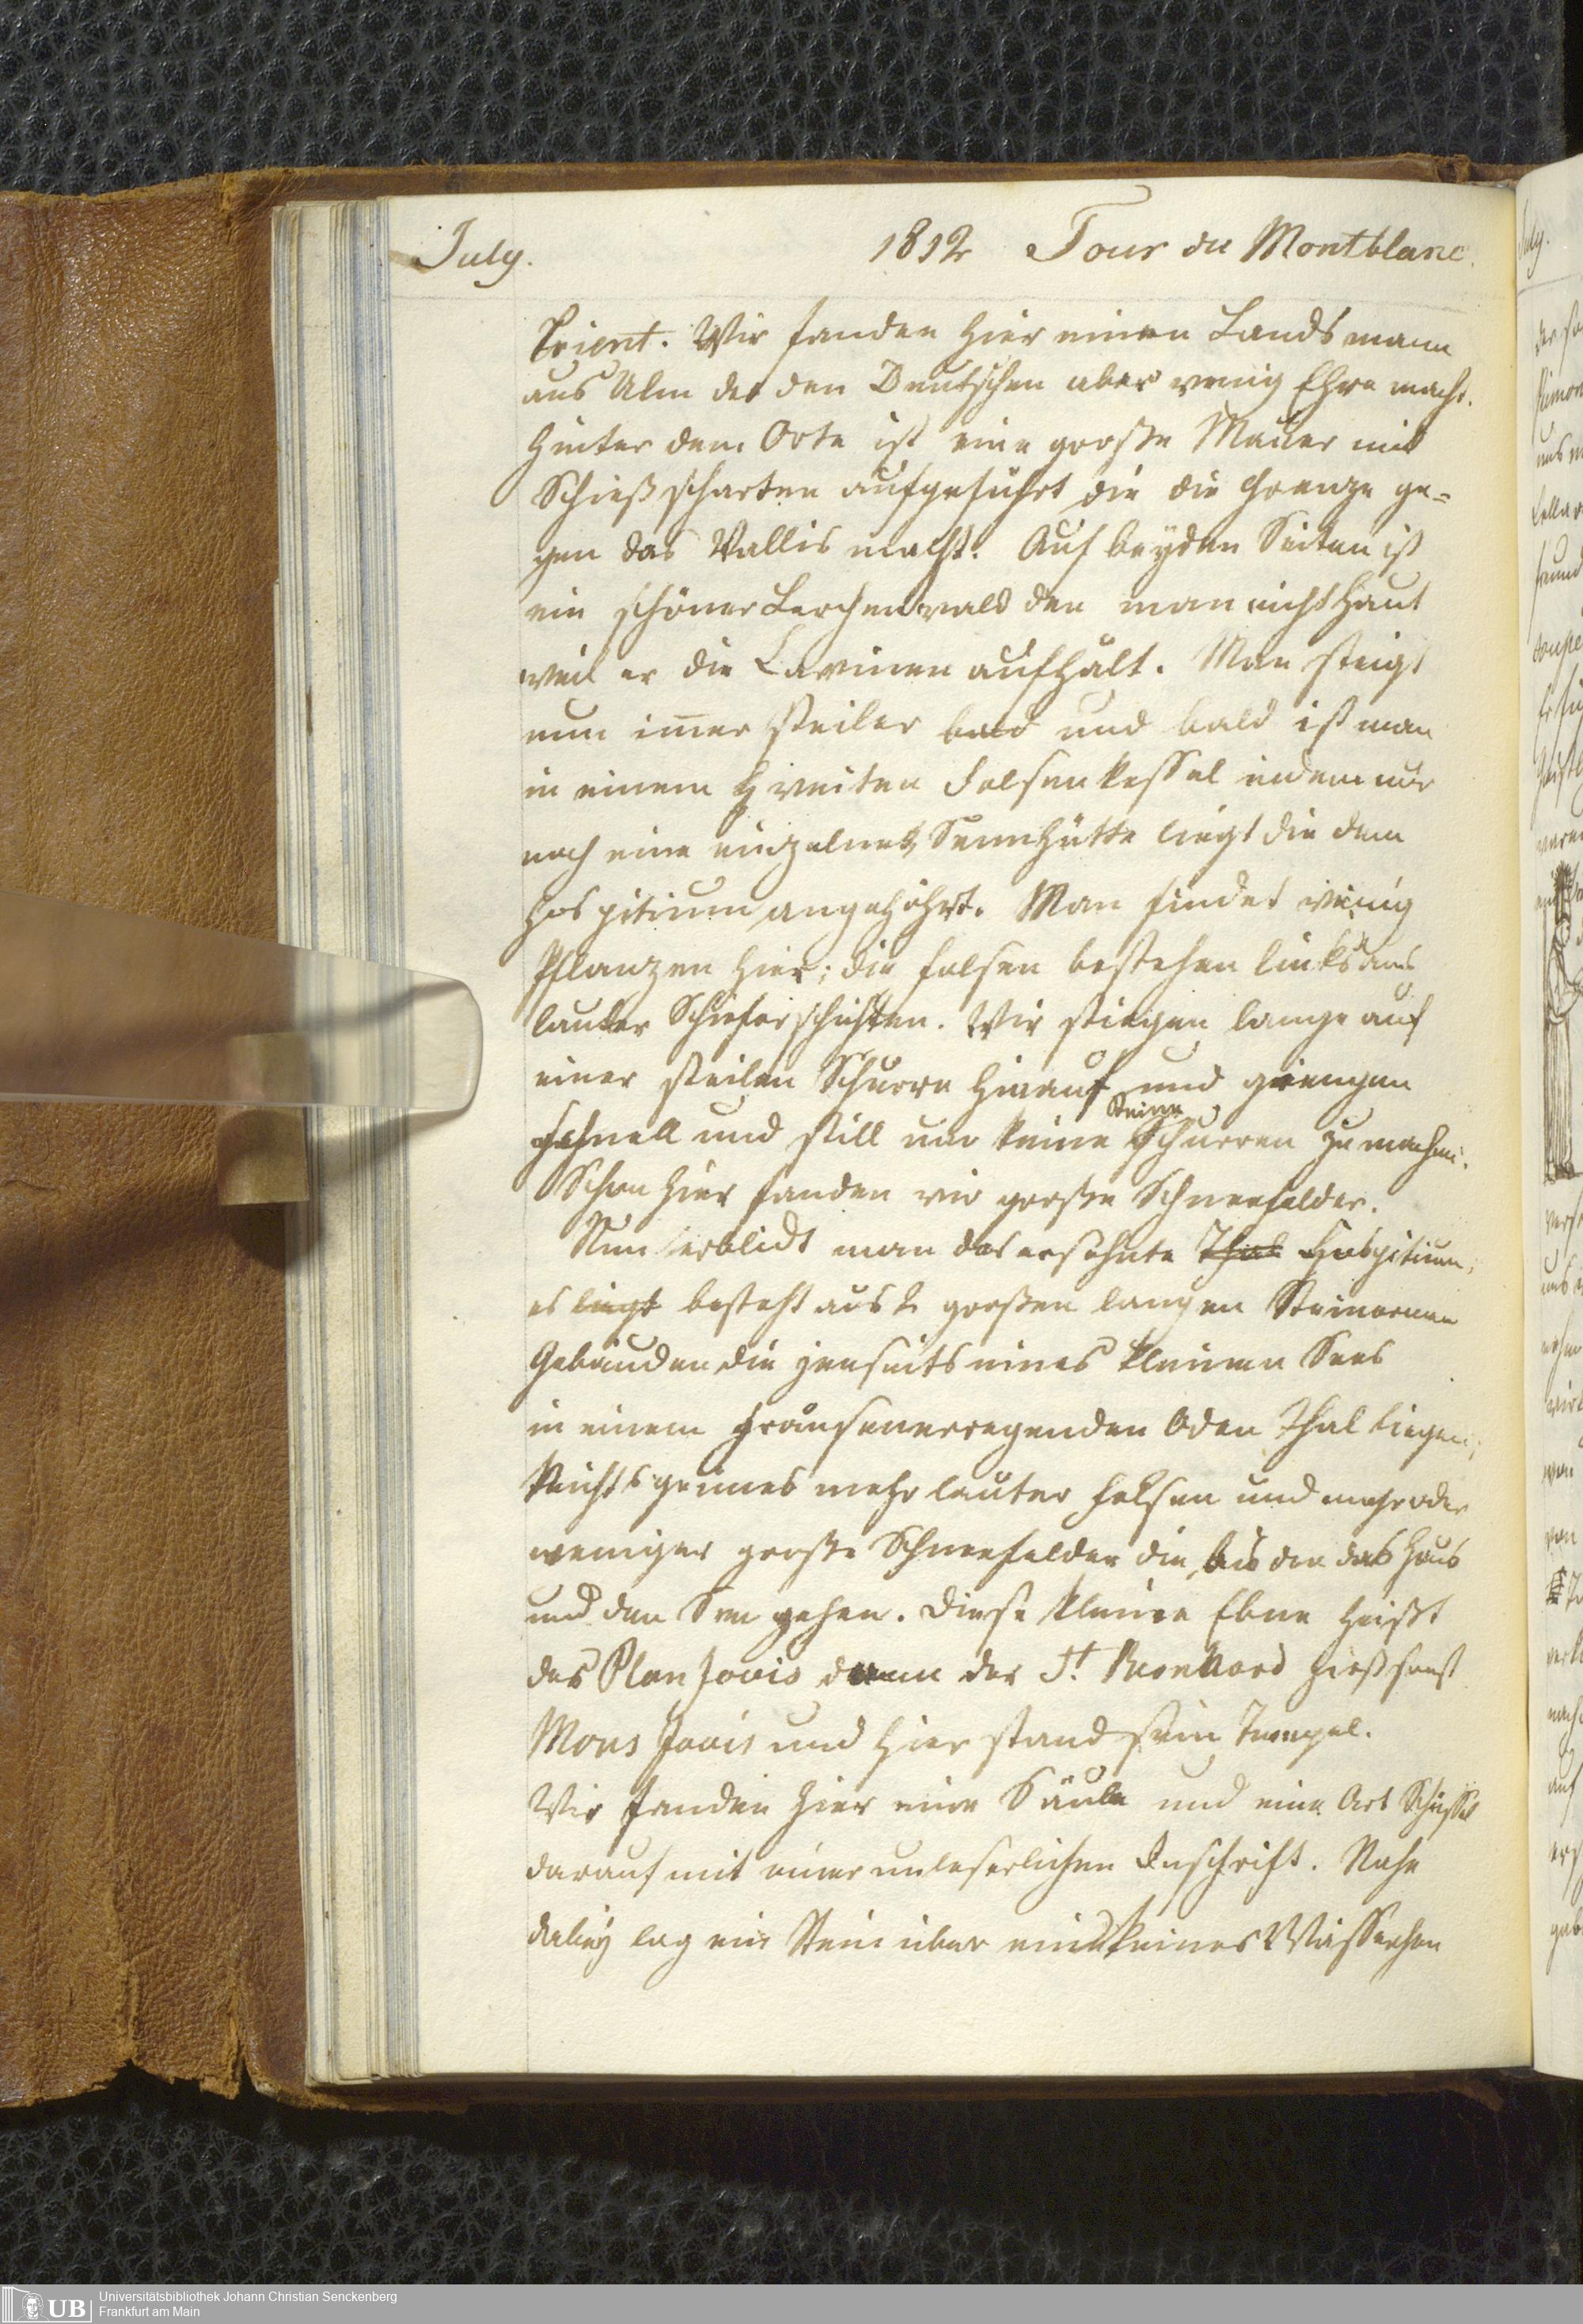 July.
1812 Tour du Montblanc.
Trient. Wir fanden hier einen Landsmann
aus Ulm der den Deutschen aber wenig Ehre macht.
Hinter dem Orte ist eine große Mauer mit
Schießscharten aufgeführt die die Grenze ge=
gen das Vallis macht. Auf beyden Seiten ist
ein schöner Lerchenwald den man nicht haut
weil er die Lavinen aufhält. Man steigt
nun im̅er steiler und bald ist man
in einem weiten Felsenkessel indem nur
noch eine einzelne Sennhütte liegt die dem
Hospitium angehöhrt. Man findet wenig
Pflanzen hier; die Felsen bestehen links aus
lauter Schieferschichten. Wir stiegen lange auf
einer steilen Schurre hinauf und giengen
schnell und still um keine Steine
Schurren zu machen.
Schon hier fanden wir große Schneefelder.
Nun erblickt man das ersehnte Thal Hospitium;
es liegt besteht aus 2 großen langen Steinernen
Gebäuden die jenseits eines kleinen Sees
in einem grausenerregenden öden Thal liegen;
Nichts grünes mehr lauter Felsen und mehr oder
weniger große Schneefelder die bis an das Haus
und den See gehen. Diese kleine Ebne heißt
das Plan Jovis denn der St. Bernhard hieß sonst
Mons Jovis und hier stand sein Tempel.
Wir fanden hier eine Säule und eine Art Schüssel
darauf mit einer unleserlichen Inschrift. Nahe
dabey lag ein Stein über ein kleines Wasserchen
July.
Universitätsbibliothek Johann Christian Senckenberg
Frankfurt am Main
UB